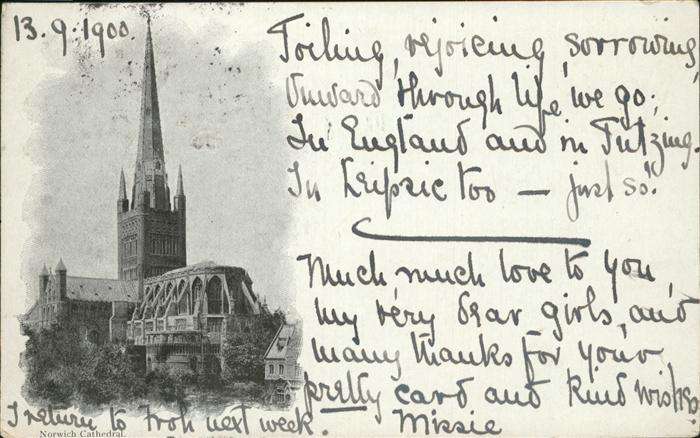 13.9.1900.
Toiling, rejoicing, sorrowing
Onward through life we go;
In England and in Tutzing.
In Leipzic too — just so."
Much, much love to you,
my very dear girls, and
many thanks for your
pretty card and kind wishes
Missie
I return to Froh next week.
Norwich Cathedral.